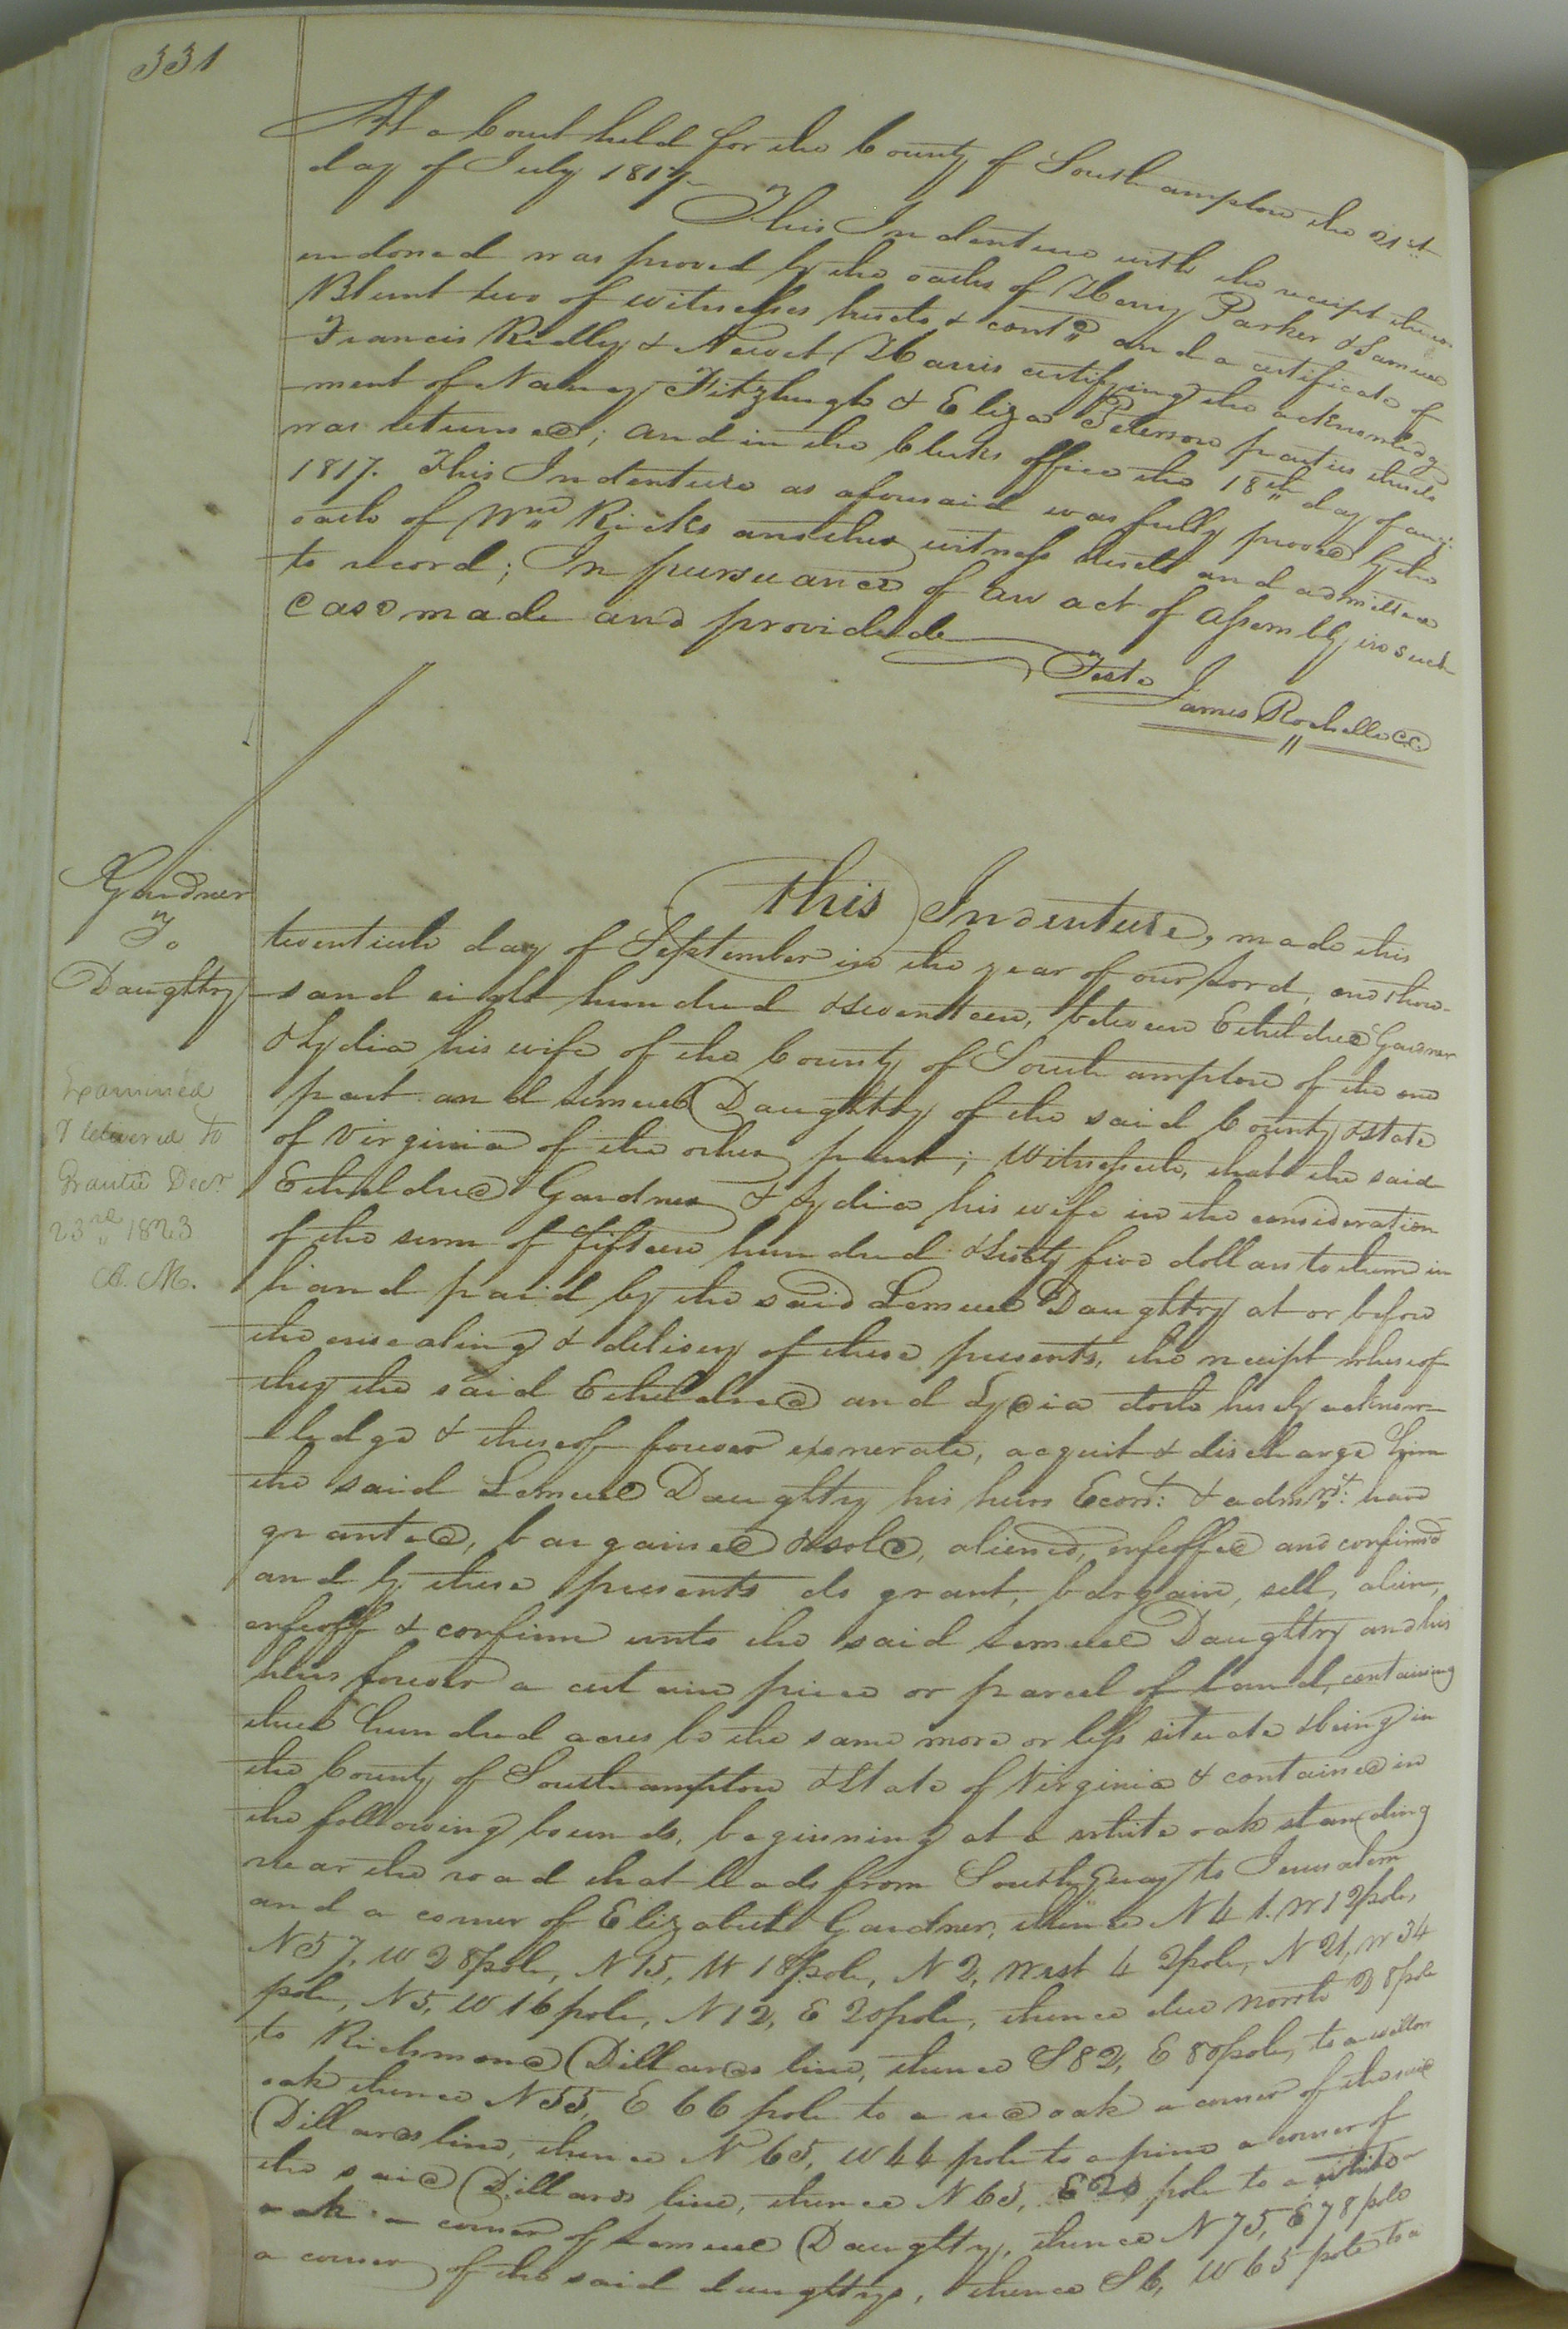 331
At a Court held for the County of Southampton the 21st
day of July 1817
This Indenture with the receipt thereon
endorsed was proved by the oaths of Henry Parker & Samuel
Blunt two of witnesses hereto & contd and a certificate of
Francis Ridley & Newit Harris certifying the acknowledg
ment of Nancy Fitzhugh & Eliza Peterson parties thereto
was returned; and in the Clerks office the 18th day of augt
1817. This Indenture as aforesaid was fully proved by the
oath of Wm Ricks another witness thereto and admitted
to record; In pursuance of an act of Assembly in such
case made and provided
Teste
James Rochelle C.C.
Gardner
To
Daughtry
Examined
& delivered to
Grantee Decr
23rd 1823
A. M.
This Indenture, made this
twentieth day of September in the year of our Lord, one thou-
sand eight hundred & seventeen, between Etheldred Gardner
& Lydia his wife of the County of Southampton of the one
part and Lemuel Daughtry of the said County & State
of Virginia of the other part; Witnesseth, that the said
Etheldred Gardner & Lydia his wife in the consideration
of the sum of fifteen hundred & sixty five dollars to them in
hand paid by the said Lemuel Daughtry at or before
the ensealing & delivery of these presents, the receipt whereof
they the said Etheldred and Lydia doth hereby acknow-
ledge & thereof forever exonerate, acquit & discharge him
the said Lemuel Daughtry his heirs Ecors: & admrs: have
granted, bargained & sold, aliened, enfeoffed and confirmed
and by these presents do grant, bargain, sell, alien,
enfeoff & confirm unto the said Lemuel Daughtry and his
heirs forever a certain piece or parcel of land, containing
three hundred acres be the same more or less situate & being in
the County of Southampton & State of Virginia & contained in
the following bounds, beginning at a white oak standing
near the road that leads from South Quay to Jerusalem
and a corner of Elizabeth Gardner, thence N 41. W 12 pole,
N 57, W 28 pole, N 15, W 18 pole, N 2, West 42 pole, N 21, W 34
pole, N 5, W 16 pole, N 12, E 20 pole, thence due north 28 pole
to Richmond Dillards line, thence S 82, E 80 pole, to a willow
oak thence N 55, E 66 pole to a red oak a corner of the said
Dillards line, thence N 65, W 44 pole to a pine a corner of
the said Dillards line, thence N 63, E 20 pole to a white-
oak a corner of Lemuel Daughtry, thence N 75, E 78 pole
a corner of the said daughtrys, thence S 6, W 65 pole to a